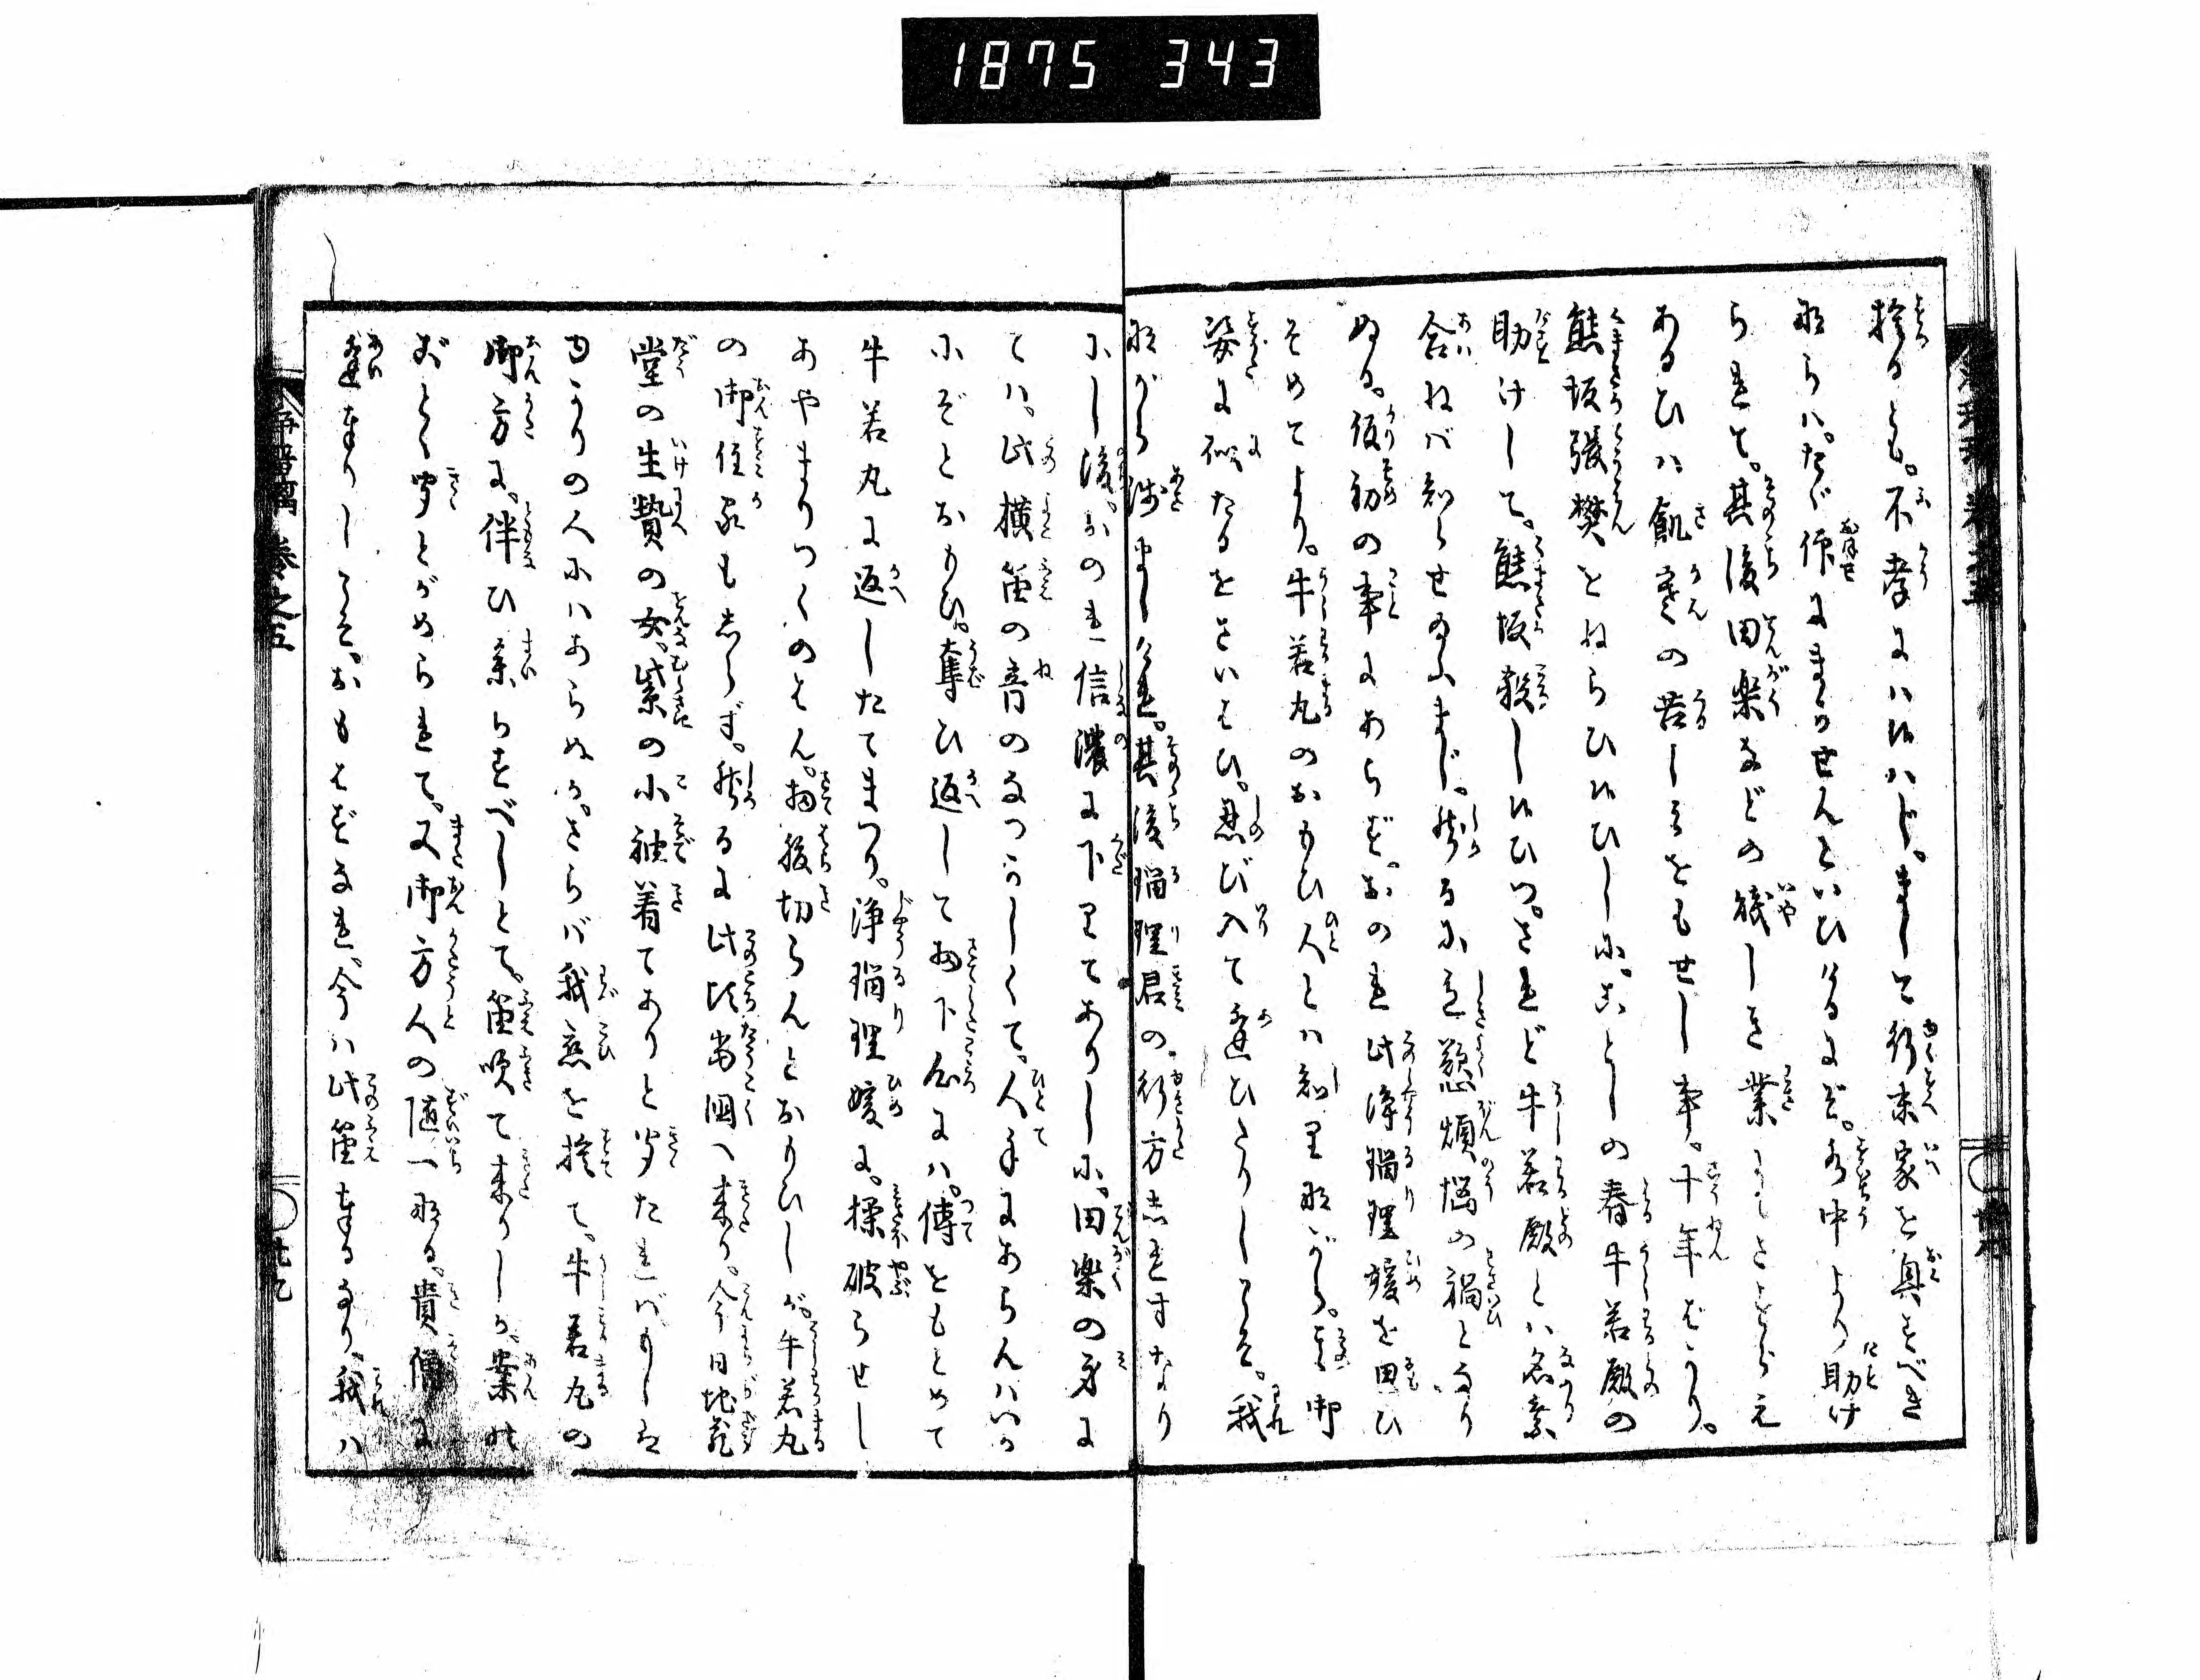 1875 343
捨るとも。不孝にハ候ハじ。まして行末家を興すべき
ならハ。たゞ仰にまかせんといひけるにぞ。水中より助け
られて。其後田楽などの賤しき業
あるひハ飢寒の苦しみをもせし事。十年ばかり。
熊坂張樊をねらひ候ひしに。ことしの春牛若殿の
助けして。熊坂殺し候ひつ。されど牛若殿とハ名乗
合ねバ知らせ給ふまじ。然るに慇煩悩の禍となり
ぬる。仮初の事にあらず。おのれ此浄瑠理媛を思ひ
そめてより。牛若丸のおもひ人とハ知りながら。其御
姿に似たるをさいはひ。忍び入て逢ひたりしこそ。我
ながら浅ましけれ。其後瑠理君の。行方しれずなり
にし後。おのれ信濃に下りてありしに。田楽の身に
てハ。此横笛の音のなつかしくて。人手にあらんハいか
にぞとおもひ。奪ひ返して扨下心にハ。傳をもとめて
牛若丸に返したてまつり。浄瑠理媛に。操破らせし
あやまりつくのはん。扨腹切らんとおもひしが。牛若丸
の御住家もしらず。然るに此比当国へ来り。今日地蔵
堂の生贄の女。紫の小袖着てありと聞たれバもしは
ゆかりの人にハあらぬか。さらバ我恋を捨て。牛若丸の
御方に。伴ひ参らすべしとて。笛吹て来りしが。案の
ごとく聞とがめられて。又御方人の随一なる。貴僧に
逢奉りしこそ。おもはずなれ。今ハ此笛奉るなり。我ハ
浄瑠璃 巻之五